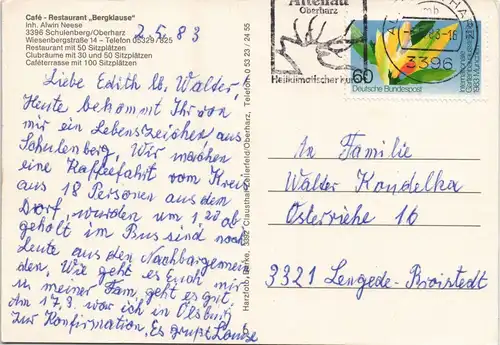 Café - Restaurant „Bergklause"
Inh. Alwin Neese
3396 Schulenberg/Oberharz
Wiesenbergstraße 14 – Telefon 05329/825
Restaurant mit 50 Sitzplätzen
Clubräume mit 30 und 50 Sitzplätzen
Caféterrasse mit 100 Sitzplätzen
2.5.83
Liebe Edith lb. Walder,
Heute bekommt Ihr von
mir ein Lebenszeichen aus
Schulenberg. Wir machen
eine Kaffeefahrt vom Kreis
aus 18 Personen aus dem
Dorf, wurden um 1,20 ab
geholt im Bus sind noch
Leute aus den Nachbargemein
den, Wie geht es Euch mir
u meiner Fam. geht es gut.
Am 17.3 war ich in Ölsburg
zur Konfirmation, Es grüßt
Harzfoto-Barke, 3392 Clausthal-Zellerfeld/Oberharz, Telefon 0 53 23 / 24 55
Altenau
Oberharz
Heilklimatischer Kur
83-16
3396
60
Deutsche Bundespost
An Familie
Walder Kondelka
Osterriehe 16
3321 Lengede-Broistedt